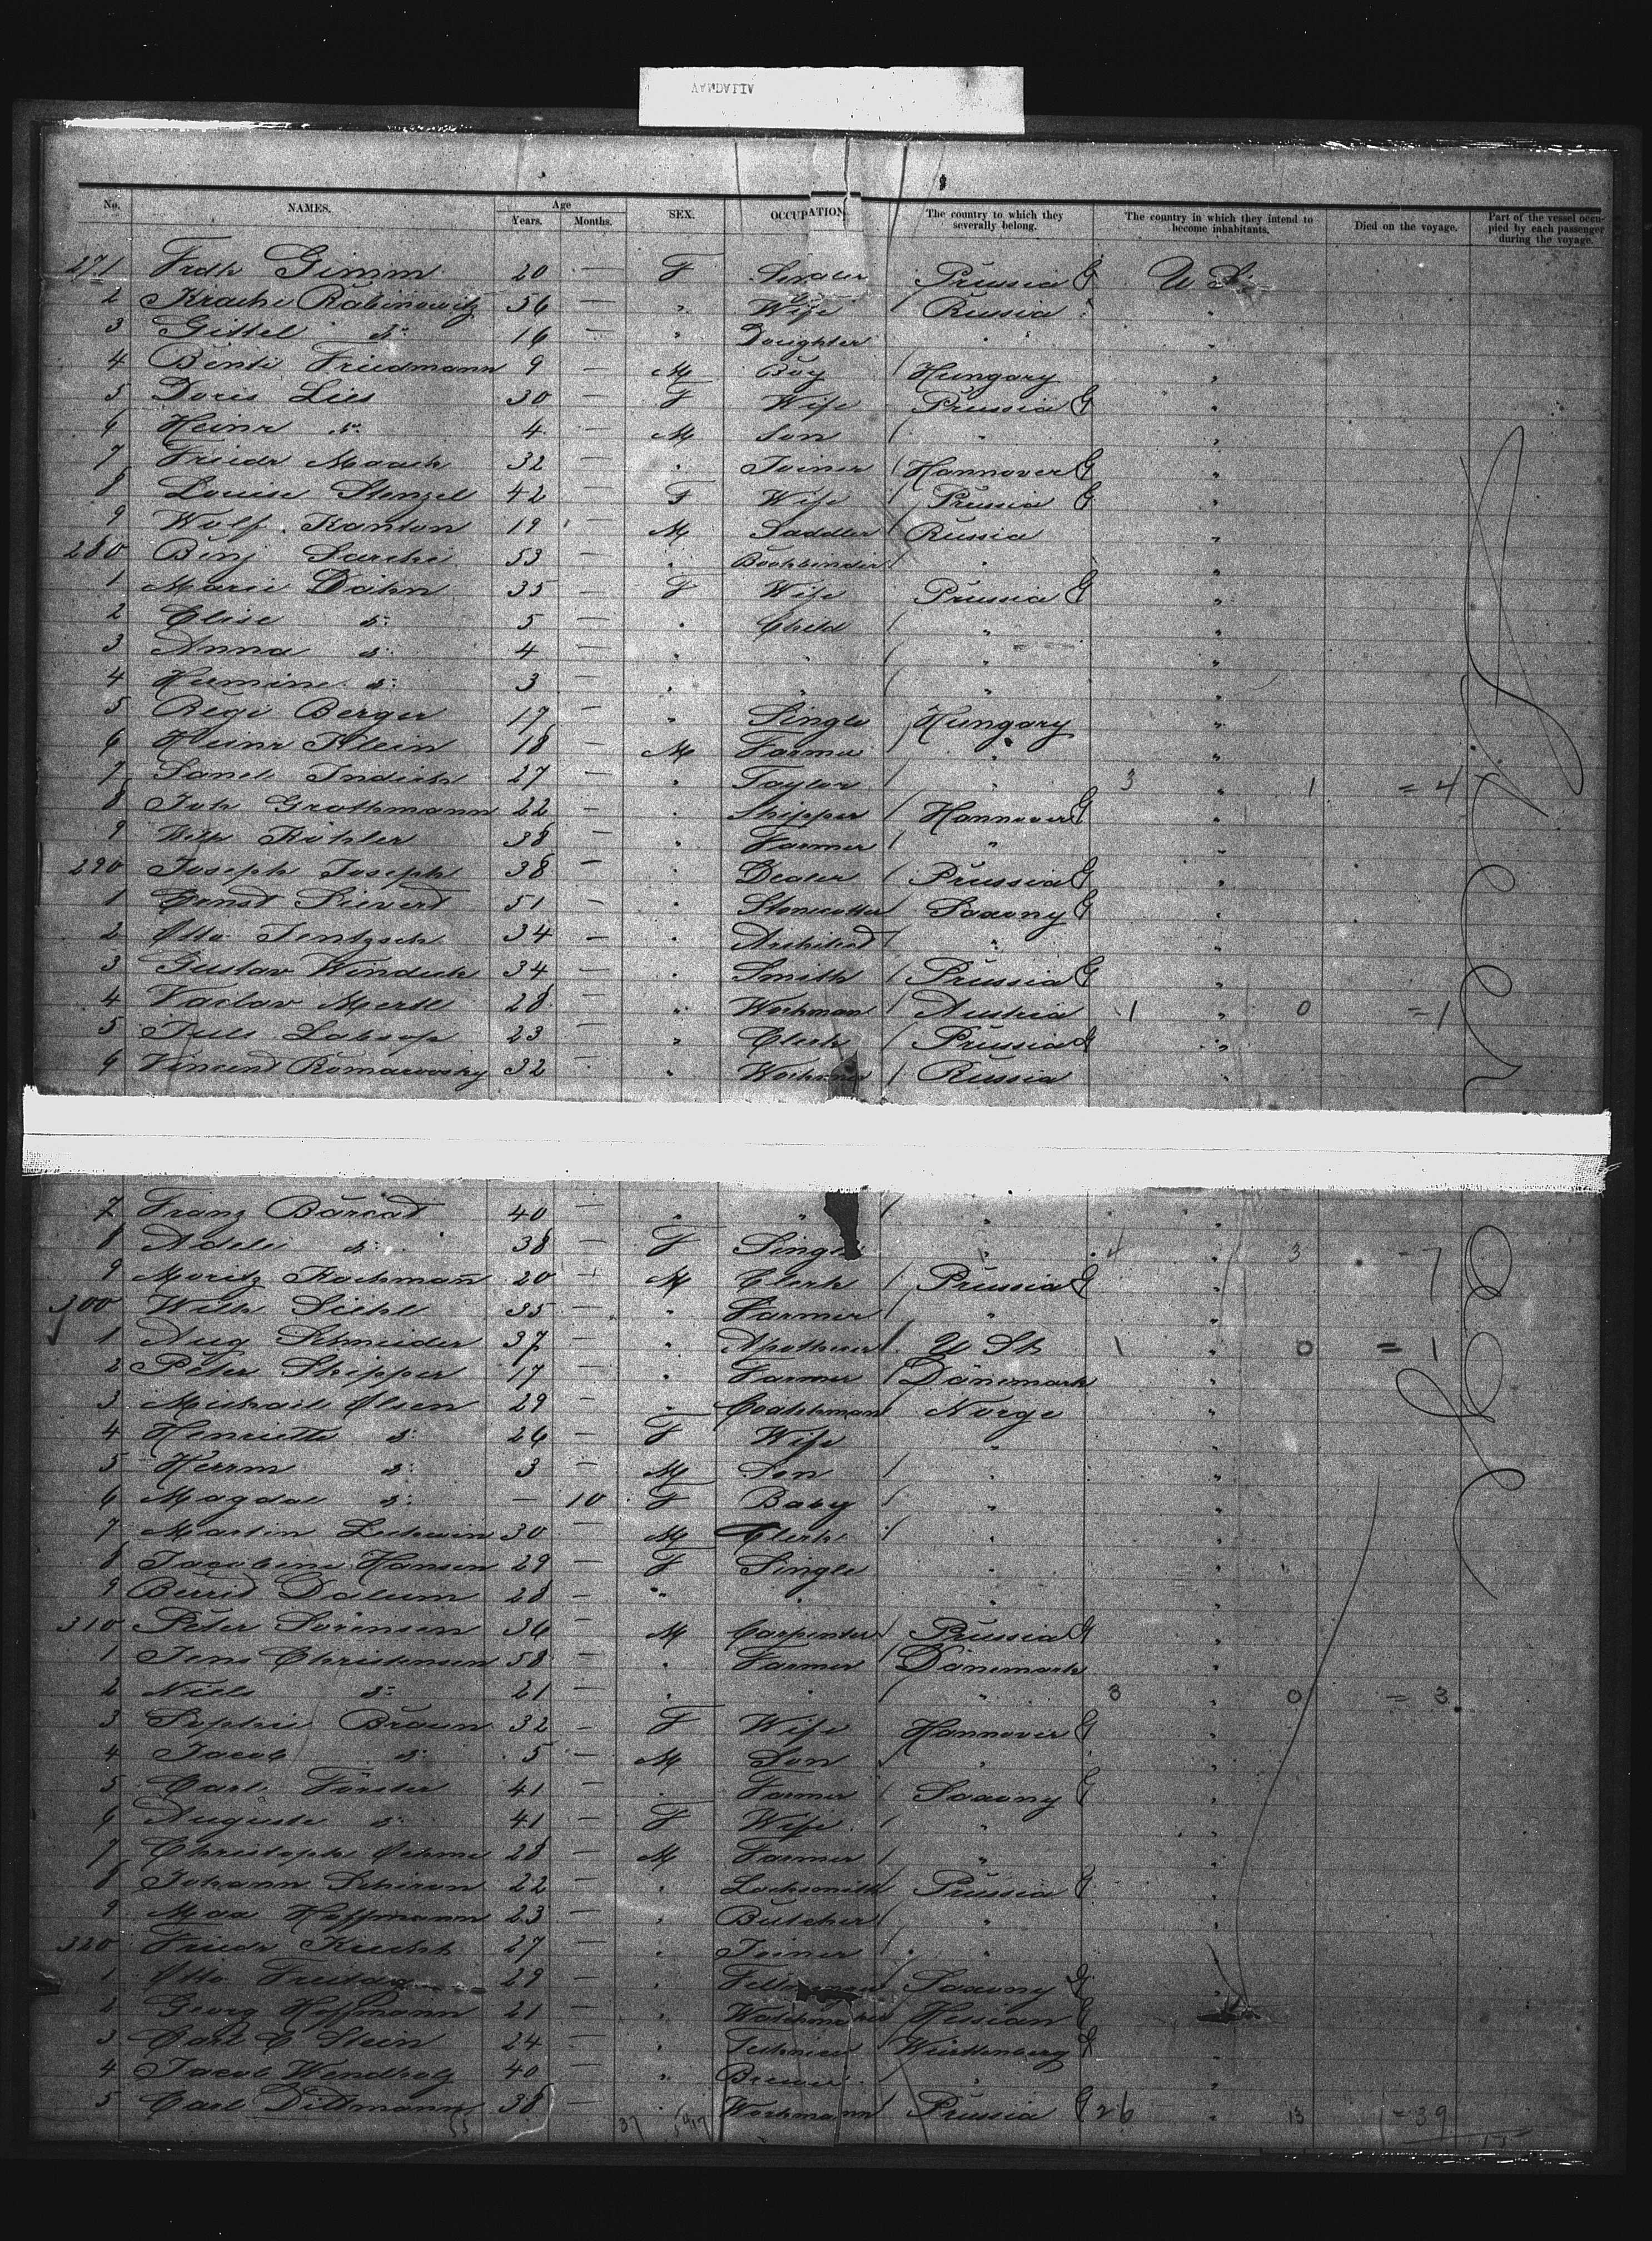 VANDALIA
No. NAMES. Age Years. Months. SEX. OCCUPATION. The country to which they severally belong. The country in which they intend to become inhabitants. Died on the voyage. Part of the vessel occupied by each passenger during the voyage.
271 Frdk Gimm 20 — F Prussia G U St.
2 Rabinowitz 56 — " Wife / Russia "
3 Gittel d° 16 — " Daughter " "
4 Benti Friedmann 9 — M Boy / Hungary "
5 Doris Lies 30 — F Wife Prussia G "
6 Heinr d° 4 — M Son / " "
7 Friedr Maack 32 — " Joiner / Hannover G "
8 Louise Stenzel 42 — F Wife / Prussia G "
9 Wolf Kanton 19 — M Saddler / Russia "
280 Benj 53 — " Bookbinder / " "
1 Marie Dähn 35 — F Wife Prussia G "
2 Elise d° 5 — " Child / " "
3 Anna d° 4 — " " / " "
4 Hermine d° 3 — " " / " "
5 Regi Berger 17 — " Single Hungary "
6 Heinr Klein 18 — M Farmer / " "
7 27 — " Taylor / " 3 " 1 = 4
8 Joh Grothmann 22 — " Shipper / Hannover G "
9 Wilh Köhler 38 — " Farmer / " "
290 Joseph Joseph 38 — " Dealer / Prussia G "
1 Ernst Sievert 51 — " Stonecutter Saxony G "
2 Otto Jentzsch 34 — " Architect / " "
3 Gustav Windisch 34 — " Smith / Prussia G "
4 Vaclav Mertl 28 — " Workman / Austria 1 " 0 = 1
5 Juls 23 " Clerk / Prussia G "
6 Vincent 32 " / Russia "
7 Franz 40 — " " / " "
8 Adele d° 38 — F Single " 4 " 3 = 7
9 Moritz Kochmann 20 — M Clerk / Prussia G "
300 Wilh Siehl 35 — " Farmer / " "
1 Aug Schneider 37 — " / U St 1 " 0 = 1
2 Peter Skipper 17 — " Farmer / Dänemark "
3 Michael Olsen 29 — " Coatchman Norge "
4 Henriette d° 26 — F Wife " "
5 Herrm d° 3 — M Son / " "
6 Magdal d° — 10 F Baby / " "
7 Martin 30 — M Clerk / " "
8 Jacobine Hansen 29 — F Single " "
9 Dalum 28 — " " " "
310 Peter Sörensen 36 — M Carpenter / Prussia G "
1 Jens Christensen 58 — " Farmer / Dänemark "
2 Niels d° 21 — " " / " 3 " 0 = 3
3 Sophie Braun 32 — F Wife Hannover G "
4 Jacob d° 5 — M Son / " "
5 Carl Förster 41 — " Farmer / Saxony G "
6 Auguste d° 41 — F Wife / " "
7 Christoph Oehme 28 — M Farmer / " "
8 Johann 22 — " Locksmith Prussia G "
9 Max Hoffmann 23 — " Butcher / " "
320 Friedr 27 — " Joiner / " "
1 Otto Freitag 29 — " Saxony G "
2 Georg Hoffmann 21 — " Watchmaker Hessian G
3 Carl C Stein 24 — " / Württenberg G "
4 Jacob 40 — " Brewer / " "
5 Carl Dittmann 38 — " Workmann Prussia G 26 " 13 = 39